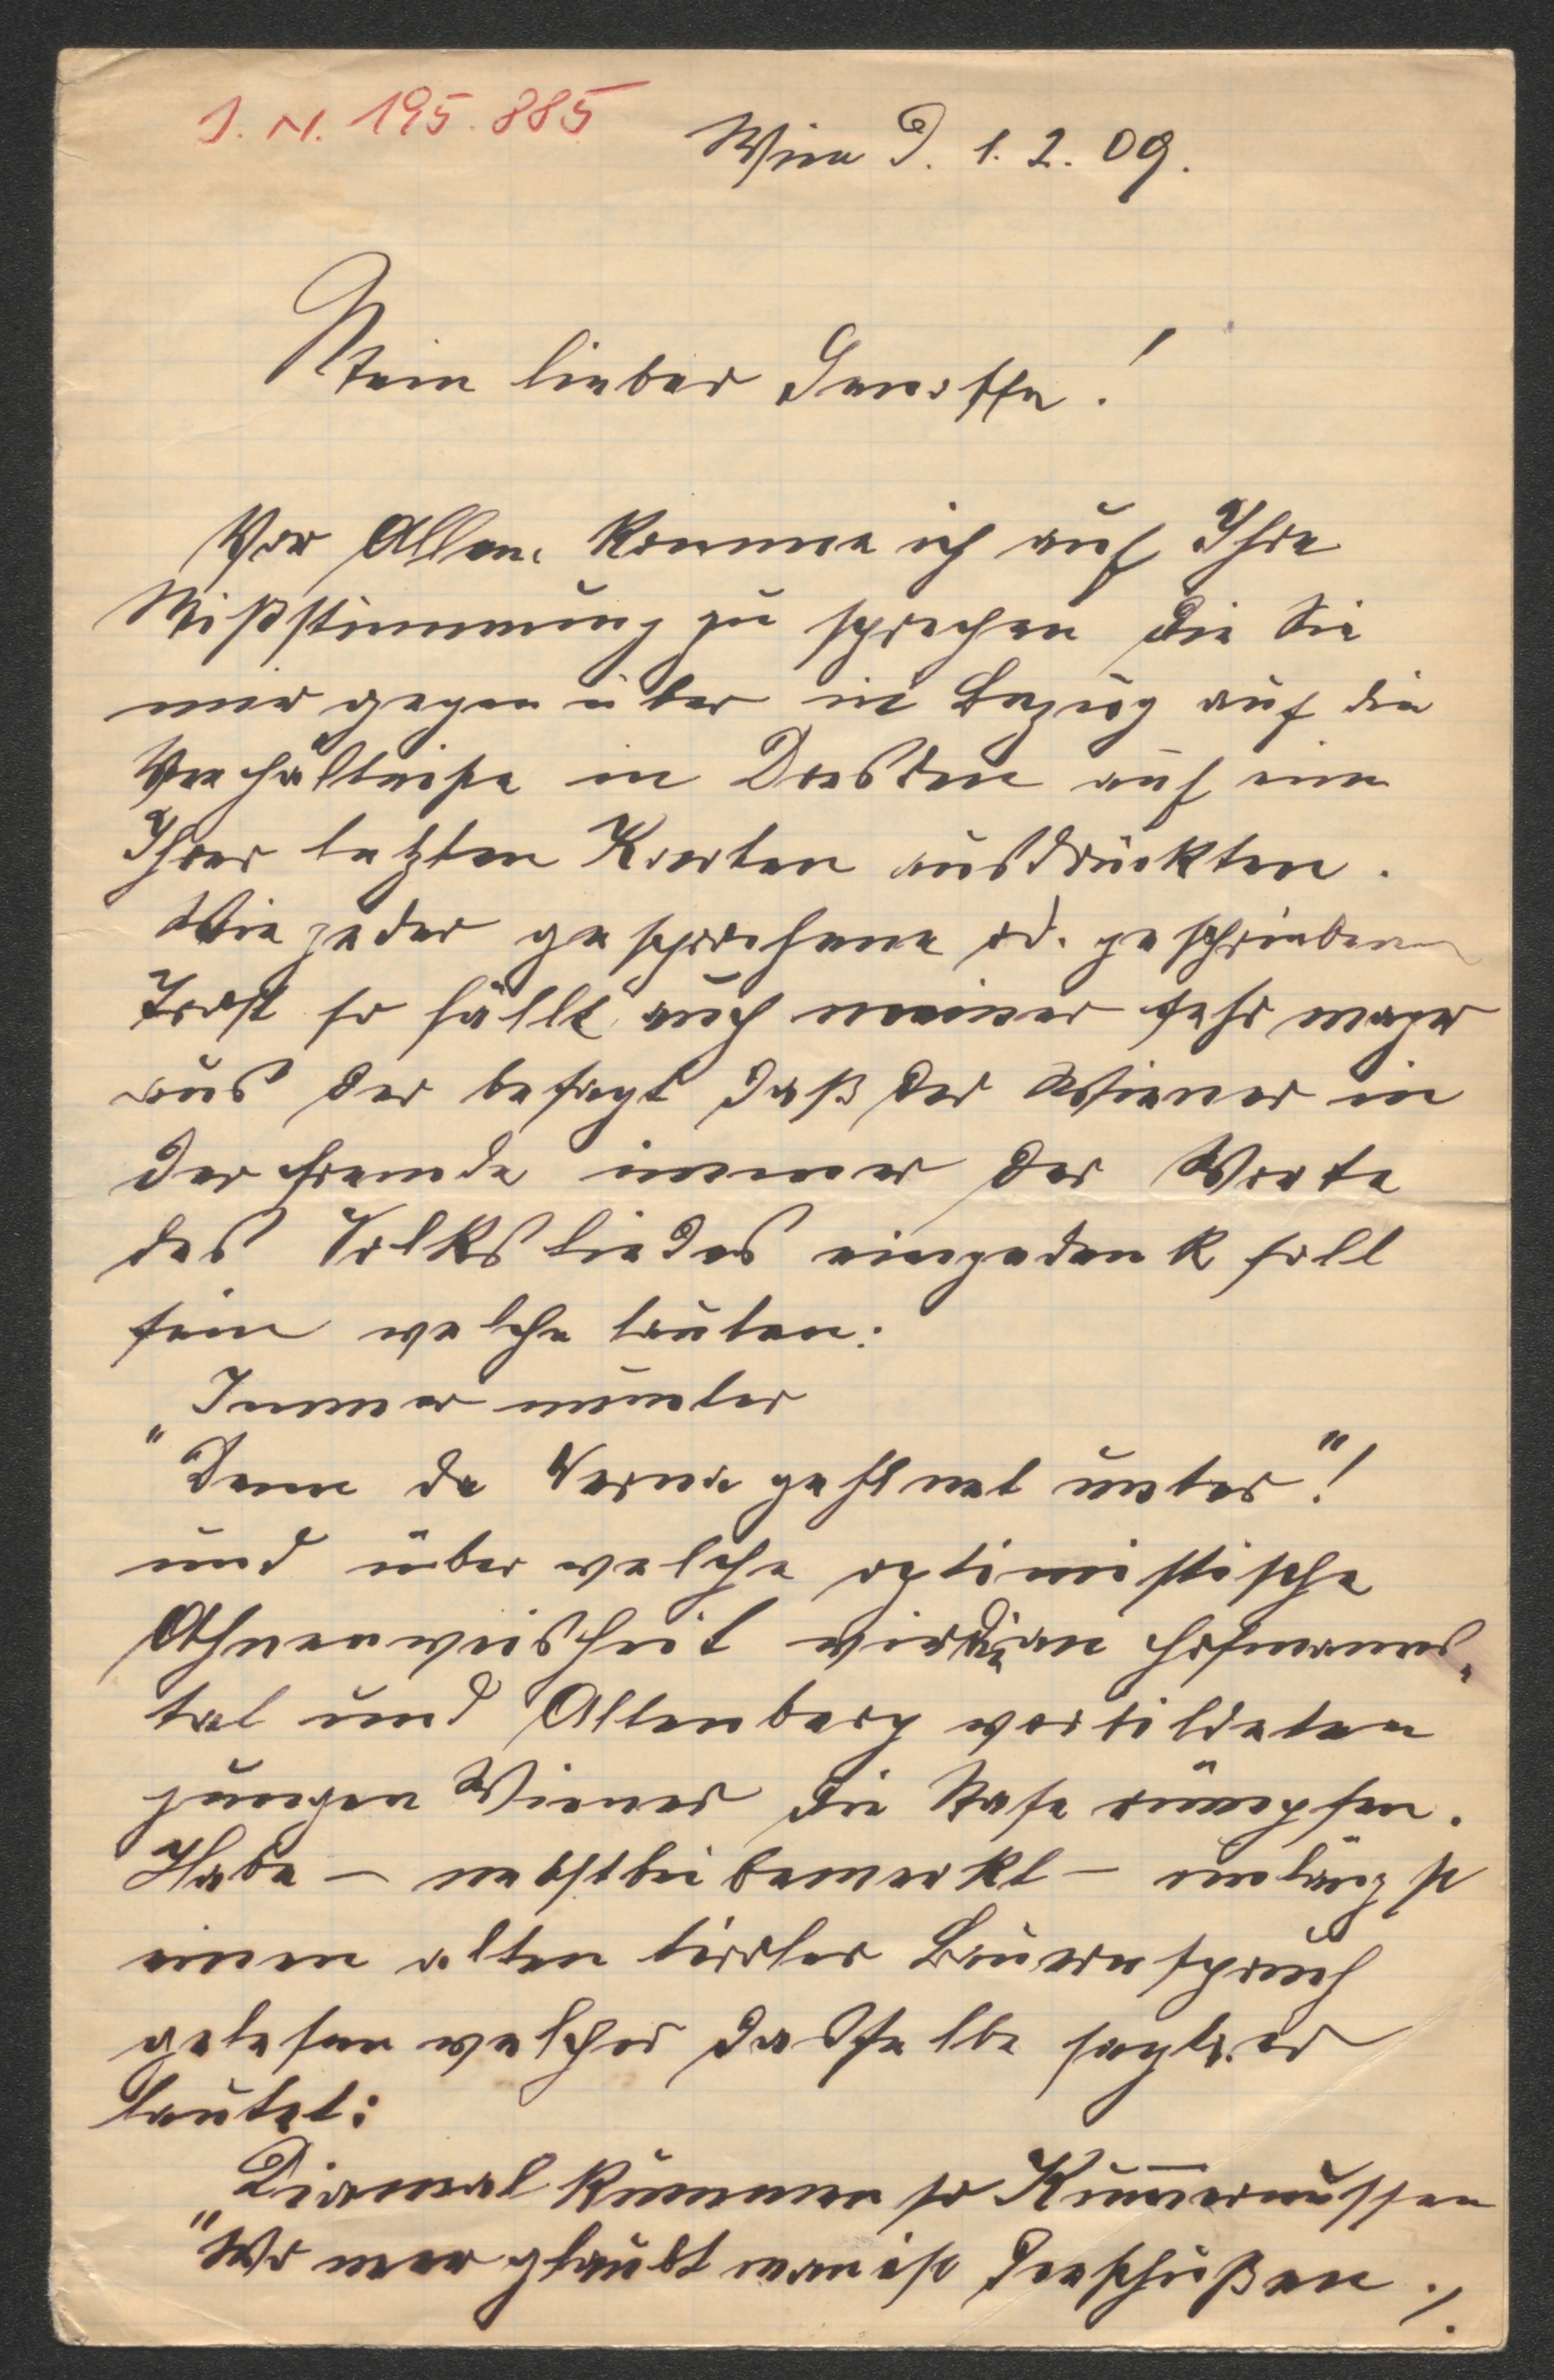 J. N. 195.885
Wien d. 1. 2. 09.
Mein lieber Genosse!
Vor Allem komme ich auf Ihre
Mißstimmung zu sprechen die Sie
mir gegenüber in Bezug auf die
Verhältniße in Dresden auf eine
Ihrer letzten Karten ausdrückten.
Wie jeder gesprochene od. geschriebene
Trost so fällt auch meiner sehr mager
aus der besagt daß der Wiener in
der Fremde immer der Worte
des Volksliedes eingedenk soll
sein welche lauten:
Immer munter
"Denn da Weana geht net unter"!
und über welche optimistische
Ahnenweisheit wir die an Hofmanns-
tal und Altenberg vorbildeten
jungen Wiener die Nase rümpfen.
Habe – nebstbei bemerkt – unlängst
einen alten tiroler Bauernspruch
gelesen welcher dasselbe sagt. er
lautet:
Diamal kummen so Kümernussen
"Wo mer glaubt man ist derschußen ./.